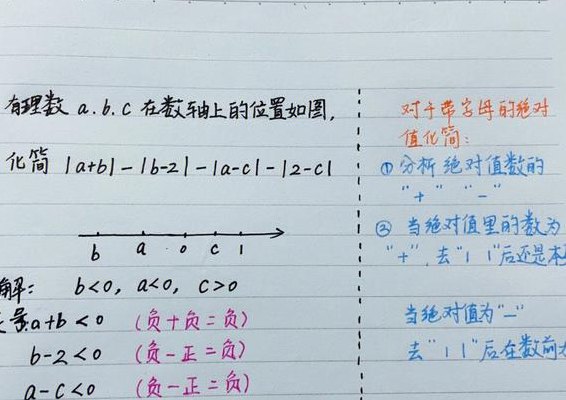 有理数 a.b.c 在数轴上的位置如图,
化简 |a+b|-|b-2|-|a-c|-|2-c|
b a 0 c 1
解: b<0, a<0, c>0
号:a+b<0 (负+负=负)
b-2<0 (负-正=负)
a-c<0 (负-正=负)
对于带字母的绝对
值化简:
① 分析绝对值数的
"+" "-"
② 当绝对值里的数为
"+",去"| |"后还是本
当绝对值为"-"
去"| |"后在数前